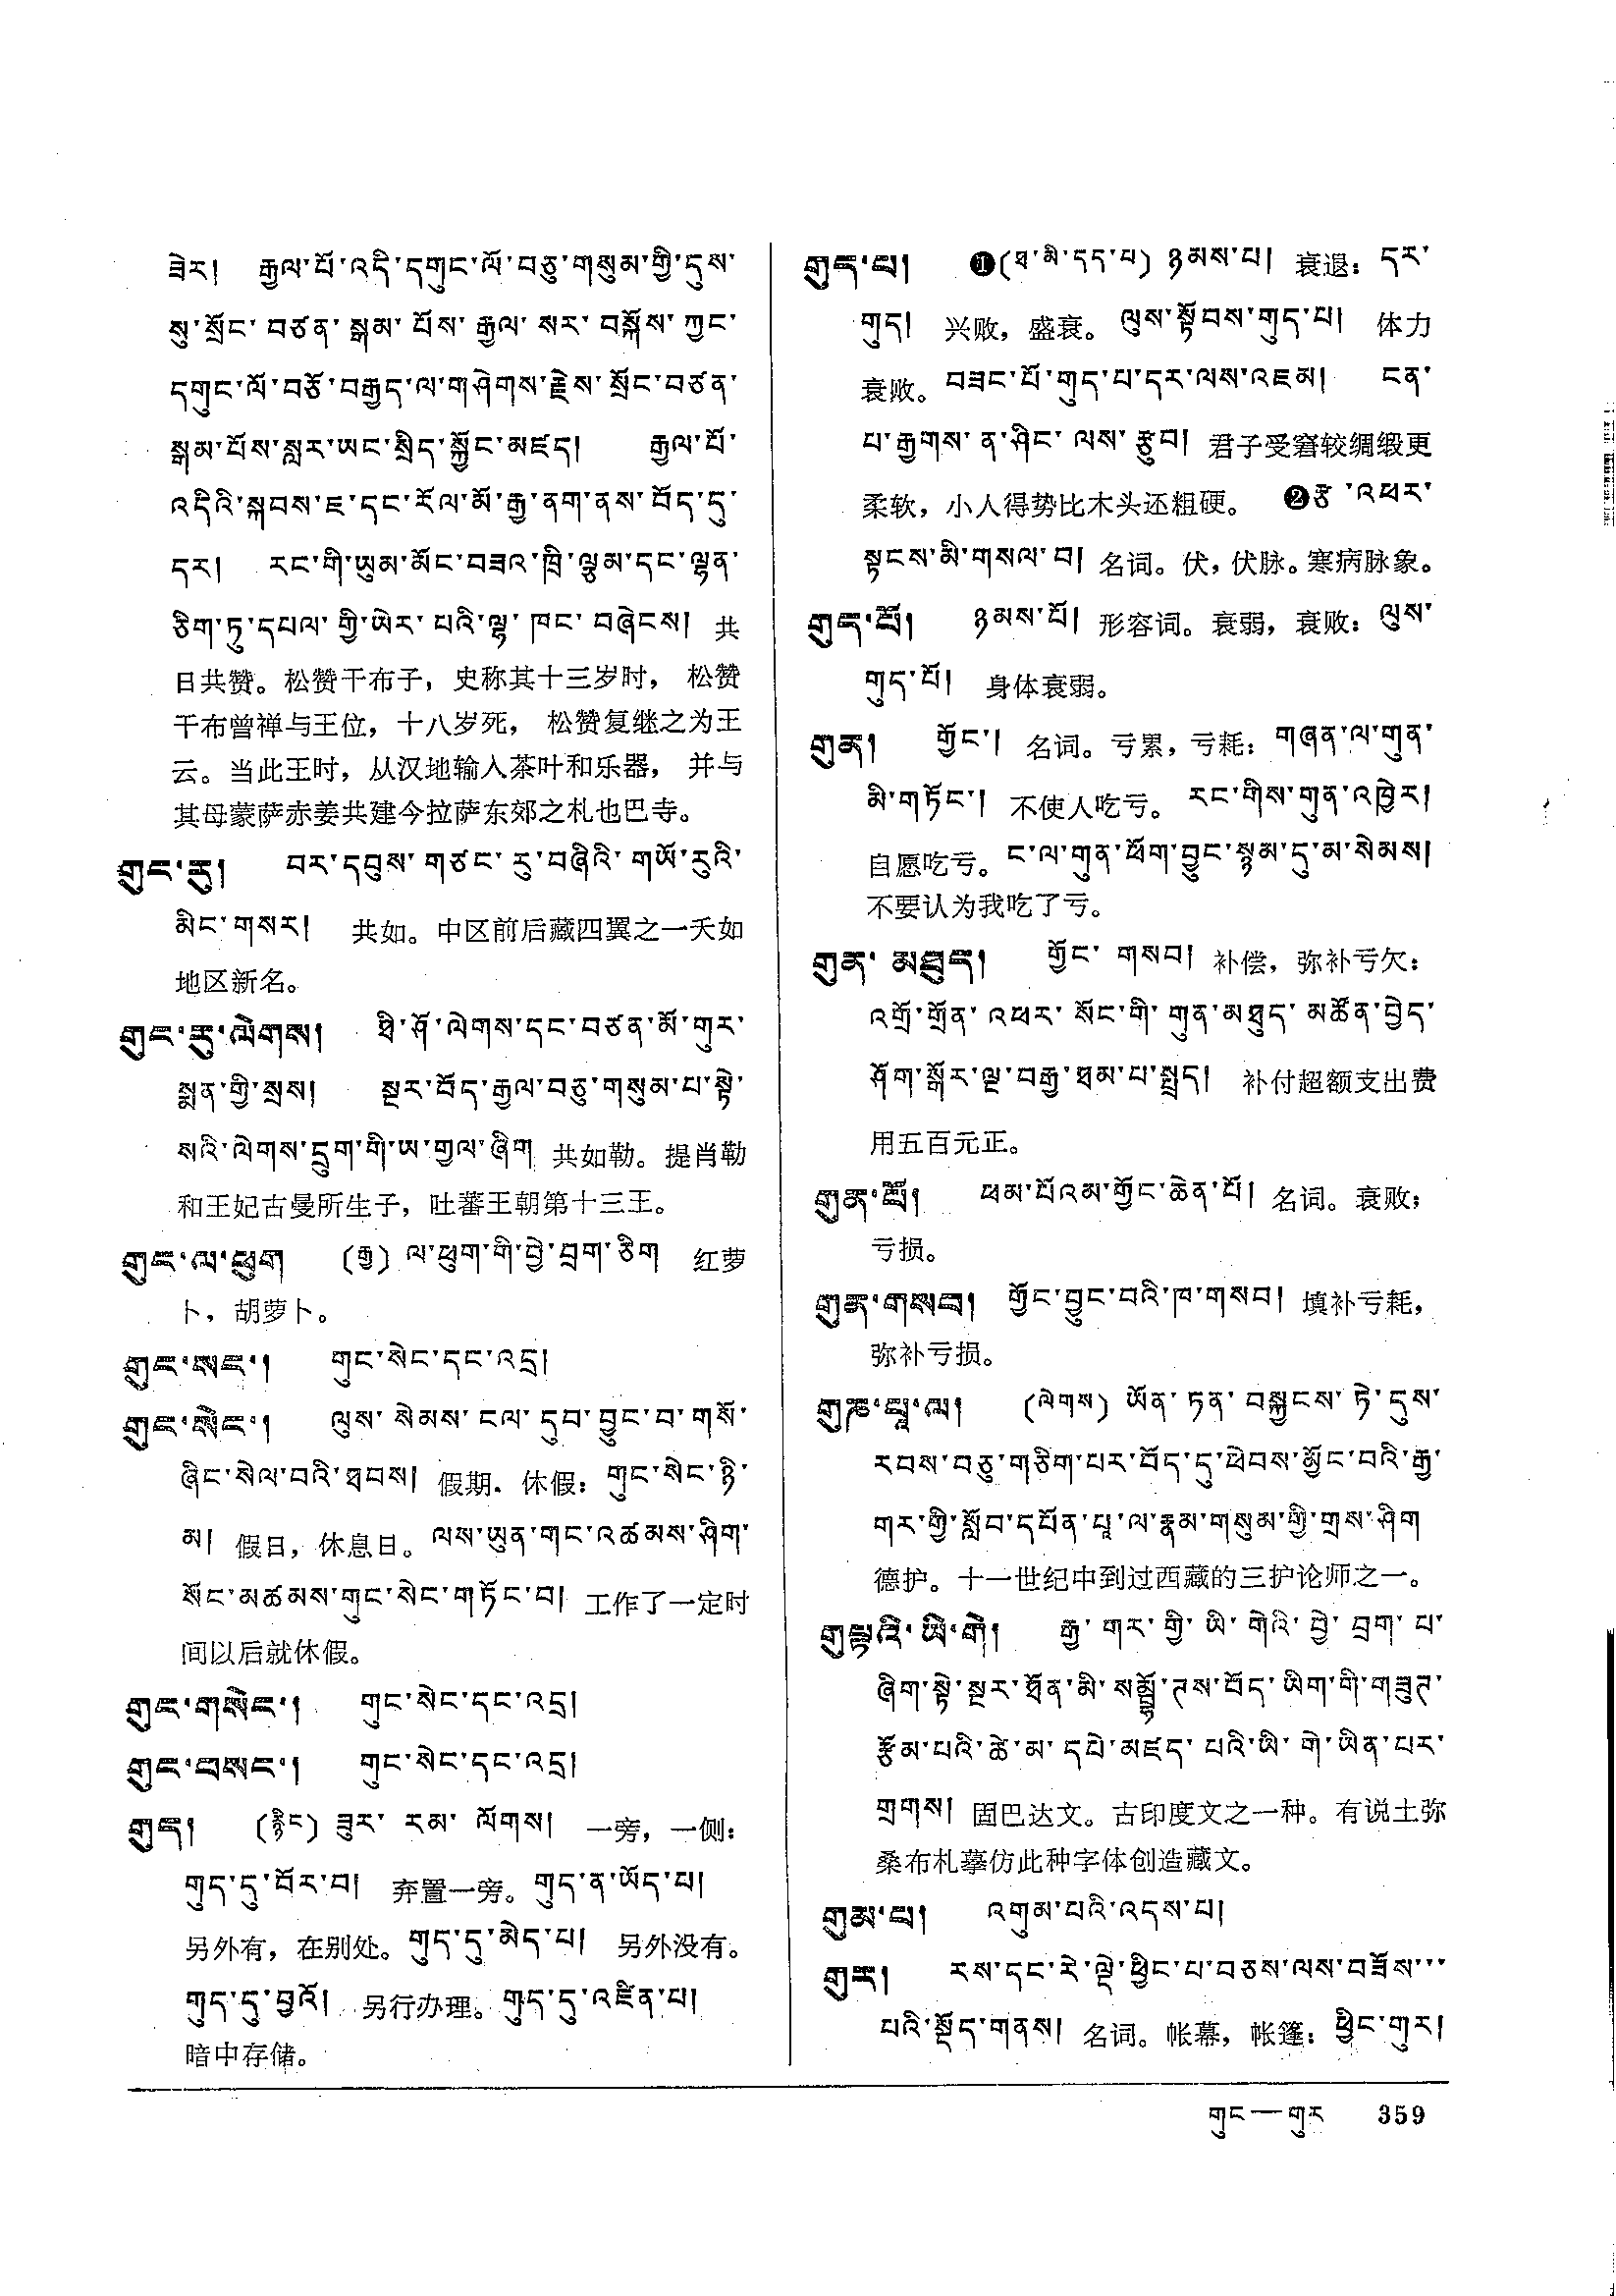 ཟེར།   རྒྱལ་པོ་འདི་དགུང་ལོ་བཅུ་གསུམ་གྱི་དུས་
སུ་སྲོང་བཙན་སྒམ་པོས་རྒྱལ་སར་བསྐོས་ཀྱང་
དགུང་ལོ་བཅོ་བརྒྱད་ལ་གཤེགས་རྗེས་སྲོང་བཙན་
སྒམ་པོས་སླར་ཡང་སྲིད་སྐྱོང་མཛད།   རྒྱལ་པོ་
འདིའི་སྐབས་ཇ་དང་རོལ་མོ་རྒྱ་ནག་ནས་བོད་དུ་
དར།   རང་གི་ཡུམ་མོང་བཟའ་ཁྲི་ལྕམ་དང་ལྷན་
ཅིག་ཏུ་དཔལ་གྱི་ཡེར་པའི་ལྷ་ཁང་བཞེངས། 共
日共赞。松赞干布子，史称其十三岁时， 松赞
干布曾禅与王位，十八岁死， 松赞复继之为王
云。当此王时，从汉地输入茶叶和乐器， 并与
其母蒙萨赤姜共建今拉萨东郊之札也巴寺。
གུང་རུ།   བར་དབུས་གཙང་རུ་བཞིའི་གཡོ་རུའི་
མིང་གསར།   共如。中区前后藏四翼之一夭如
地区新名。
གུང་རུ་ལེགས།   ཐི་ཤོ་ལེགས་དང་བཙན་མོ་གུར་
སྨན་གྱི་སྲས།   སྔར་བོད་རྒྱལ་བཅུ་གསུམ་པ་སྟེ་
སའི་ལེགས་དྲུག་གི་ཨ་གྱལ་ཞིག 共如勒。提肖勒
和王妃古曼所生子，吐蕃王朝第十三王。
གུང་ལ་ཕུག   (རྒྱ) ལ་ཕུག་གི་བྱེ་བྲག་ཅིག   红萝
卜，胡萝卜。
གུང་སང་།   གུང་སེང་དང་འདྲ།
གུང་སེང་།   ལུས་སེམས་ངལ་དུབ་བྱུང་བ་གསོ་
ཞིང་སེལ་བའི་ཐབས། 假期．休假：གུང་སེང་ཉི་
མ། 假日，休息日。ལས་ཡུན་གང་འཚམས་ཤིག་
སོང་མཚམས་གུང་སེང་གཏོང་བ། 工作了一定时
间以后就休假。
གུང་གསེང་།   གུང་སེང་དང་འདྲ།
གུང་བསང་།   གུང་སེང་དང་འདྲ།
གུད།   (རྙིང) ཟུར་ རམ་ ལོགས།   一旁，一侧：
གུད་དུ་བོར་བ།   弃置一旁。གུད་ན་ཡོད་པ།
另外有，在别处。གུད་དུ་མེད་པ།   另外没有。
གུད་དུ་བྱའོ།   另行办理。གུད་དུ་འཛིན་པ།
暗中存储。
གུད་པ།   ❶(ཐ་མི་དད་པ) ཉམས་པ།   衰退：དར་
གུད།   兴败，盛衰。ལུས་སྟོབས་གུད་པ།   体力
衰败。བཟང་པོ་གུད་པ་དར་ལས་འཇམ།   ངན་
པ་རྒྱགས་ན་ཤིང་ལས་རྩུབ། 君子受窘较绸缎更
柔软，小人得势比木头还粗硬。 ❷རྩ་འཕར་
སྟངས་མི་གསལ་བ། 名词。伏，伏脉。寒病脉象。
གུད་པོ།   ཉམས་པོ། 形容词。衰弱，衰败：ལུས་
གུད་པོ།   身体衰弱。
གུན།   གྱོང་། 名词。亏累，亏耗：གཞན་ལ་གུན་
མི་གཏོང་། 不使人吃亏。རང་གིས་གུན་འཁྱེར།
自愿吃亏。ང་ལ་གུན་ཕོག་བྱུང་སྙམ་དུ་མ་སེམས།
不要认为我吃了亏。
གུན་མཐུད།   གྱོང་ གསབ། 补偿，弥补亏欠：
འགྲོ་གྲོན་འཕར་སོང་གི་གུན་མཐུད་མཚོན་བྱེད་
ཤོག་སྒོར་ལྔ་བརྒྱ་ཐམ་པ་སྤྲད།   补付超额支出费
用五百元正。
གུན་པོ།   ཕམ་པོའམ་གྱོང་ཆེན་པོ། 名词。衰败；
亏损。
གུན་གསབ།   གྱོང་བྱུང་བའི་ཁ་གསབ། 填补亏耗，
弥补亏损。
གུཎ་པཱ་ལ།   (ལེགས) ཡོན་ཏན་བསྐྱངས་ཏེ་དུས་
རབས་བཅུ་གཅིག་པར་བོད་དུ་ཕེབས་མྱོང་བའི་རྒྱ་
གར་གྱི་སློབ་དཔོན་པཱ་ལ་རྣམ་གསུམ་གྱི་གྲས་ཤིག
德护。十一世纪中到过西藏的三护论师之一。
གུཔྟའི་ཡི་གེ།   རྒྱ་གར་གྱི་ཡི་གེའི་བྱེ་བྲག་པ་
ཞིག་སྟེ་སྔར་ཐོན་མི་སམྦྷོ་ཊས་བོད་ཡིག་གི་གཟུཊ་
རྩོམ་པའི་ཚེ་མ་དཔེ་མཛད་པའི་ཡི་གེ་ཡིན་པར་
གྲགས། 固巴达文。古印度文之一种。有说土弥
桑布札摹仿此种字体创造藏文。
གུམ་པ།   འགུམ་པའི་འདས་པ།
གུར།   རས་དང་རེ་ལྡེ་ཕྱིང་པ་བཅས་ལས་བཟོས་་་
པའི་སྡོད་གནས། 名词。帐幕，帐篷：ཕྱིང་གུར།
གུང—གུར   359